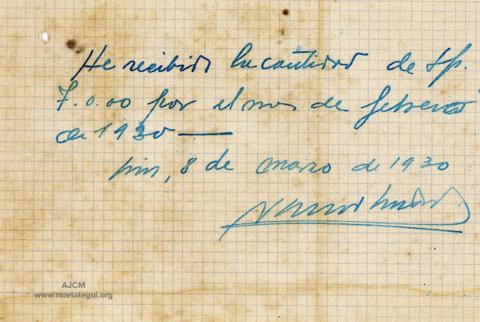 He recibido la cantidad de Lp.
7.0.00 por el mes de febrero
de 1930 —
Lima, 8 de marzo de 1930
AJCM
www.mariategui.org